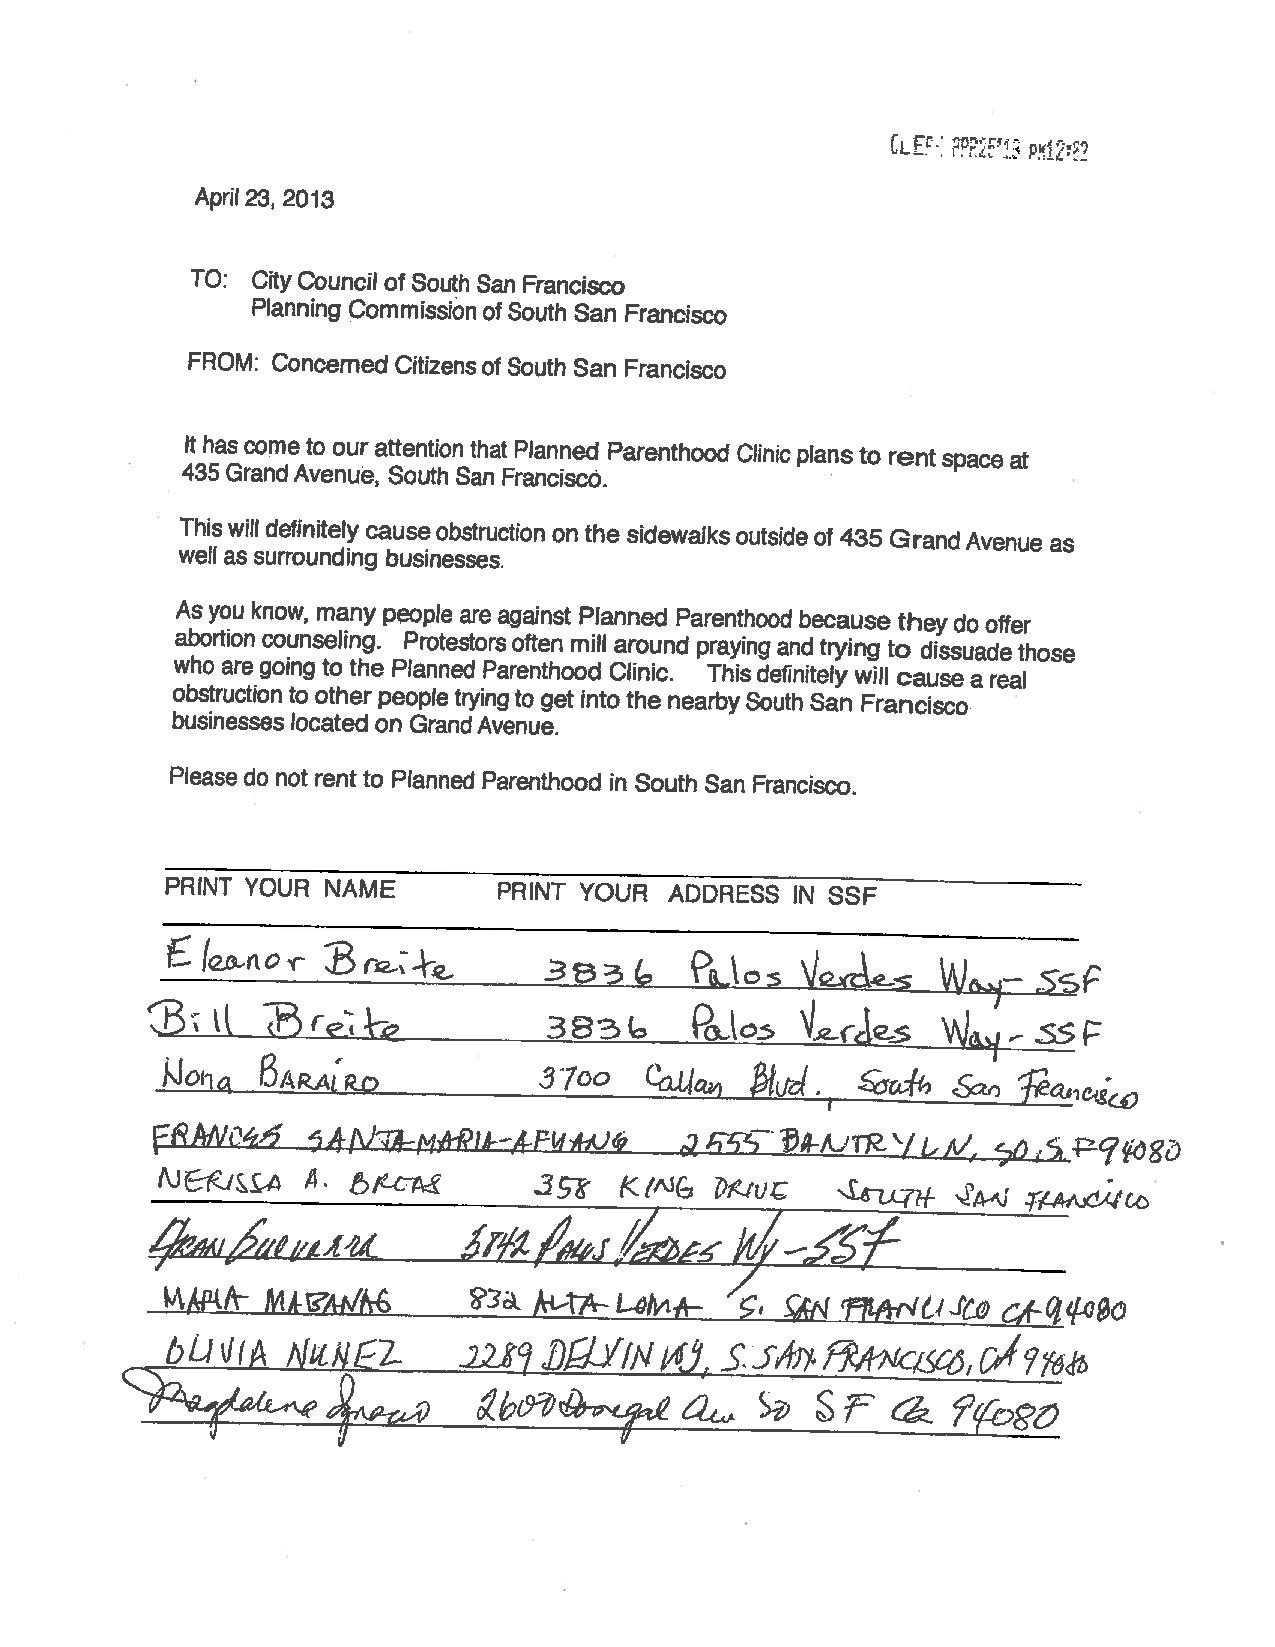 April 23, 2013
TO: City Council of South San Francisco
Planning Commission of South San Francisco
FROM: Concerned Citizens of South San Francisco
It has come to our attention that Planned Parenthood Clinic plans to rent space at
435 Grand Avenue, South San Francisco.
This will definitely cause obstruction on the sidewalks outside of 435 Grand Avenue as
well as surrounding businesses.
As you know, many people are against Planned Parenthood because they do offer
abortion counseling. Protestors often mill around praying and trying to dissuade those
who are going to the Planned Parenthood Clinic. This definitely will cause a real
obstruction to other people trying to get into the nearby South San Francisco
businesses located on Grand Avenue.
Please do not rent to Planned Parenthood in South San Francisco.
PRINT YOUR NAME PRINT YOUR ADDRESS IN SSF
Eleanor Breite 3836 Palos Verdes Way - SSF
Bill Breite 3836 Palos Verdes Way - SSF
Nona BARAIRO 3700 Callan Blvd. South San Francisco
FRANCES SANTA MARIA-AFUANG 2555 BANTRY LN, SO. S.F 94080
NERISSA A. 358 KING DRIVE SOUTH SAN FRANCISCO
GUEVARRA PALOS VERDES Wy - SSF
MARIA MABANAG 832 ALTA LOMA S. SAN FRANCISCO CA 94080
OLIVIA NUNEZ 2289 DELVIN WY, S. SAN FRANCISCO, CA 94080
Magdalena Donegal Av So SF Ca 94080